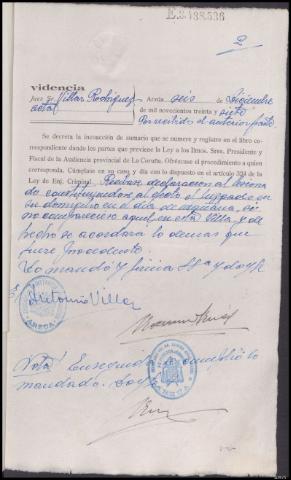 E.3488.536
2
videncia
Juez Sr. Villar Rodriguez
actal
Arzúa seis de Diciembre
de mil novecientos treinta y siete
Por recibido el anterior parte
Se decreta la incoacción de sumario que se numere y registre en el libro co-
rrespondiente dando los partes que previene la Ley a los Itmos. Sres. Presidente y
Fiscal de la Audiencia provincial de La Coruña. Obténgase el procedimiento a quien
corresponda. Cúmplase en su caso y día con lo dispuesto en el artículo 324 de
la Ley de Enj. Criminal. Recíbase declaracion al
constituyendose al efecto el Juzgado en
su domicilio en el dia de mañana, si
no compareciese aquel en esta Villa y de
hecho se acordará lo demas que
fuere procedente.
Lo mandó y firma Sª y doy fe
Antonio Villar
Nota Enseguida cumplió lo
mandado. Doy fe